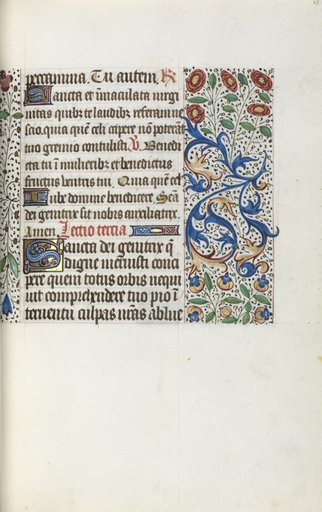 peccamina. Tu autem. R̄
Sancta et īmaculata virgi
nitas quibꝫ te laudibꝫ referam ne
scio. quia quē celi capere nō poterāt
tuo gremio contulisti. V̄. Benedi
cta tu ī mulieribꝫ et benedictus
fructus ventris tui. Quia quē cel
Iube domine benedicere. Scā
dei genitrix sit nobis auxiliatrix.
Amen. Lectio tercia
Sancta dei genitrix q̄
digne meruisti conci
pere quem totus orbis nequi
uit comprehendere tuo pio ī
teruentu culpas nr̄as ablue